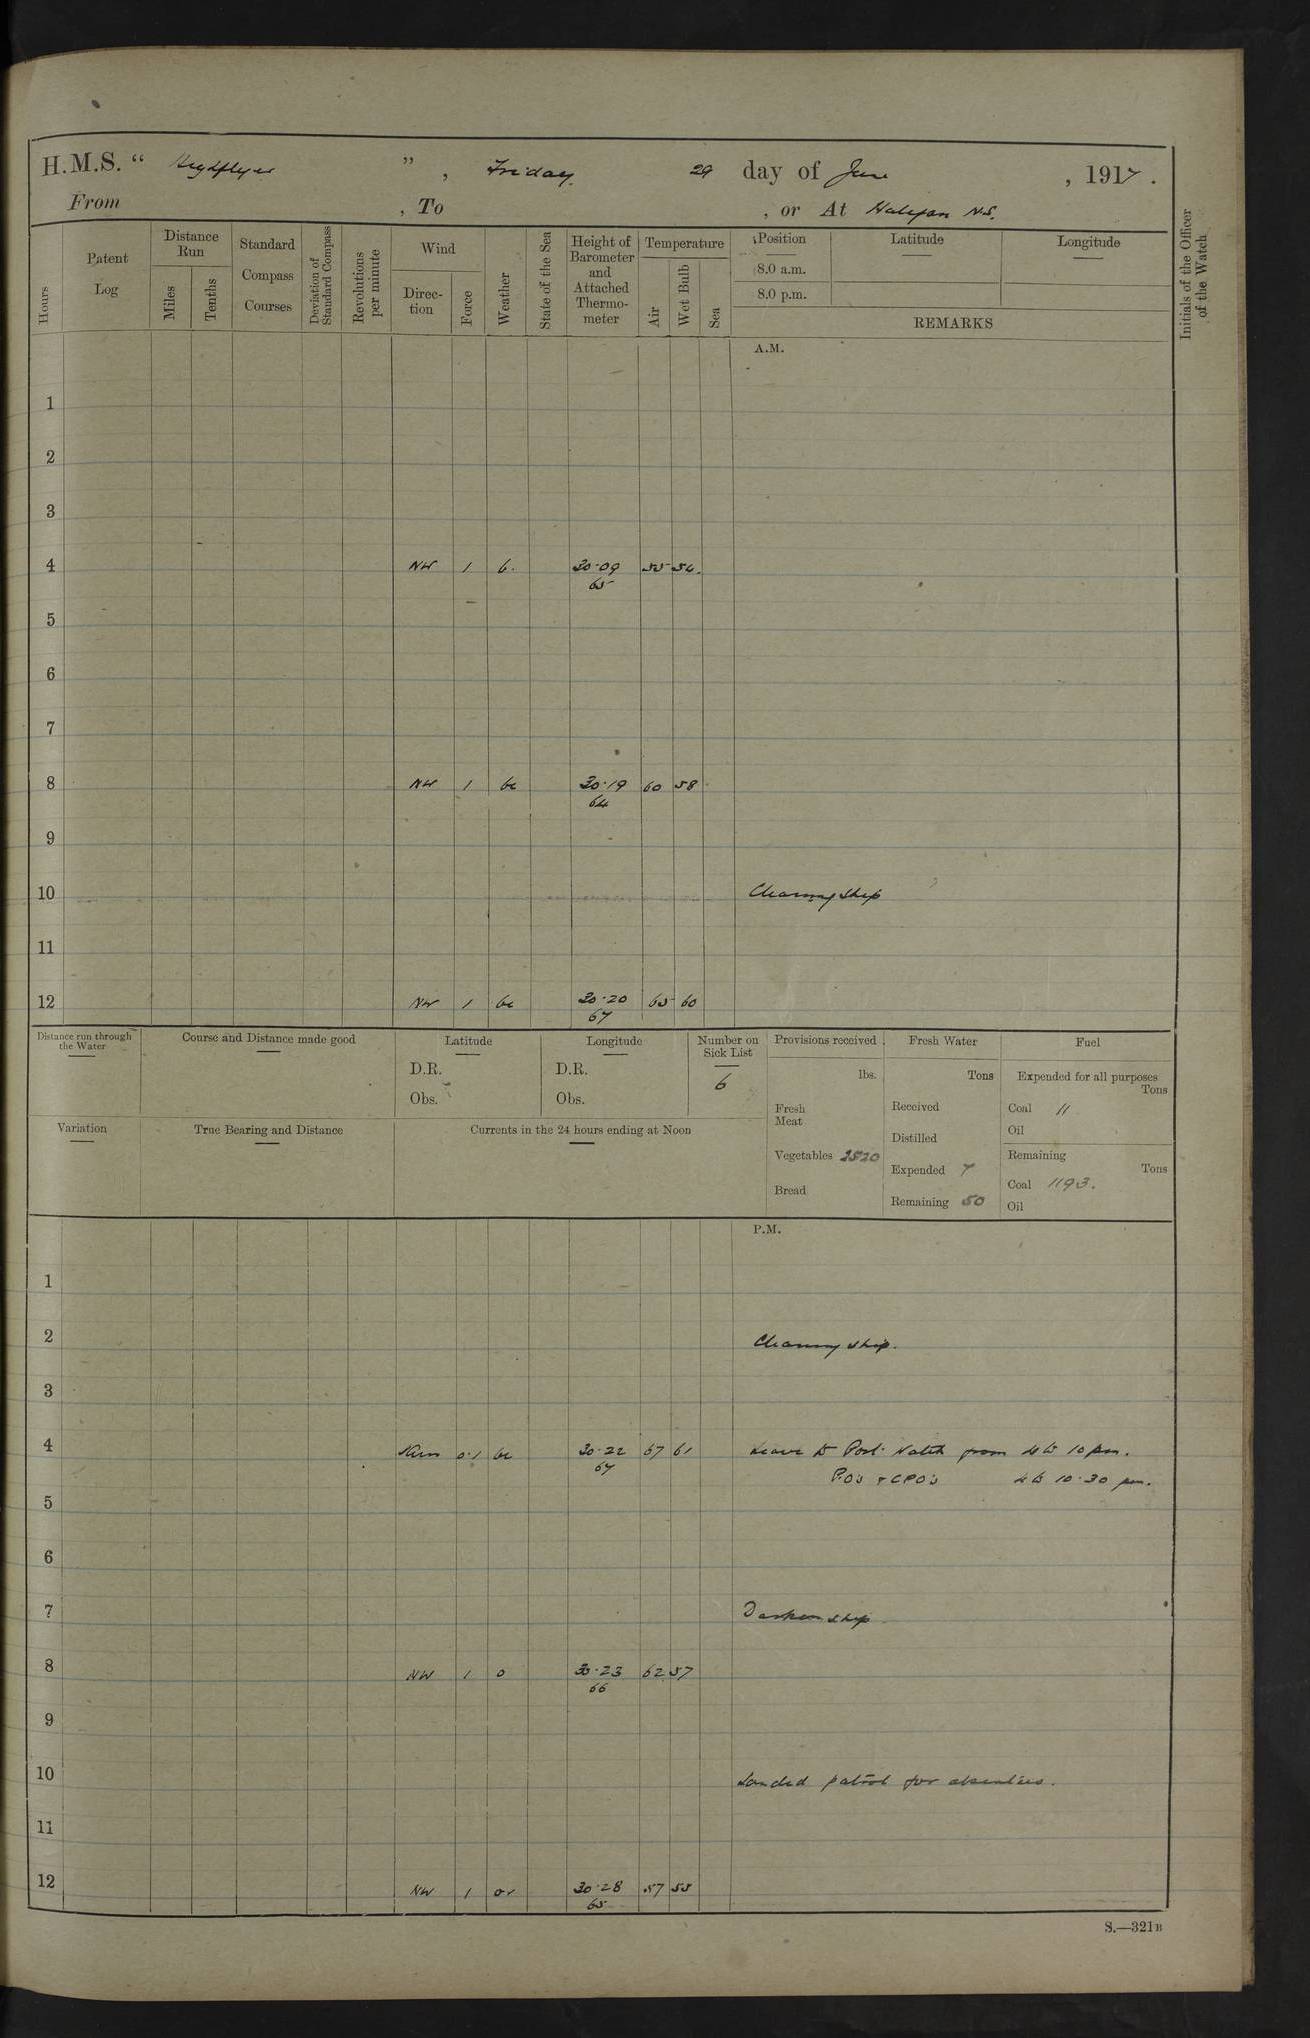 H.M.S. “ Highflyer ”, Friday. 29 day of June, 1917.
From , To , or At Halifax N.S.
Hours
Patent Log
Distance Run
Miles
Tenths
Standard Compass Courses
Deviation of Standard Compass
Revolutions per minute
Wind
Direction
Force
Weather
State of the Sea
Height of Barometer and Attached Thermometer
Temperature
Air
Wet Bulb
Sea
Position
8.0 a.m.
8.0 p.m.
Latitude
Longitude
REMARKS
Initials of the Officer of the Watch
A.M.
1
2
3
4 NW 1 b. 30·09 55 54.
65
5
6
7
8 NW 1 bc 30·19 60 58
64
9
10 Cleaning ship
11
12 NW 1 bc 30·20 65 60
67
Distance run through the Water
Course and Distance made good
Latitude
D.R.
Obs.
Longitude
D.R.
Obs.
Number on Sick List
6
Provisions received
lbs.
Fresh Meat
Vegetables 2520
Bread
Fresh Water
Tons
Received
Distilled
Expended 7
Remaining 50
Fuel
Expended for all purposes
Tons
Coal 11
Oil
Remaining
Tons
Coal 1193.
Oil
Variation
True Bearing and Distance
Currents in the 24 hours ending at Noon
P.M.
1
2 Cleaning ship.
3
4 0·1 bc 30·22 67 61 Leave to Port Watch from 4 to 10 pm.
67 P.O's & CPO's 4 to 10·30 pm.
5
6
7 Darken ship
8 NW 1 o 30·23 62 57
66
9
10 Landed patrol for absentees.
11
12 NW 1 or 30·28 57 55
65
S.—321B